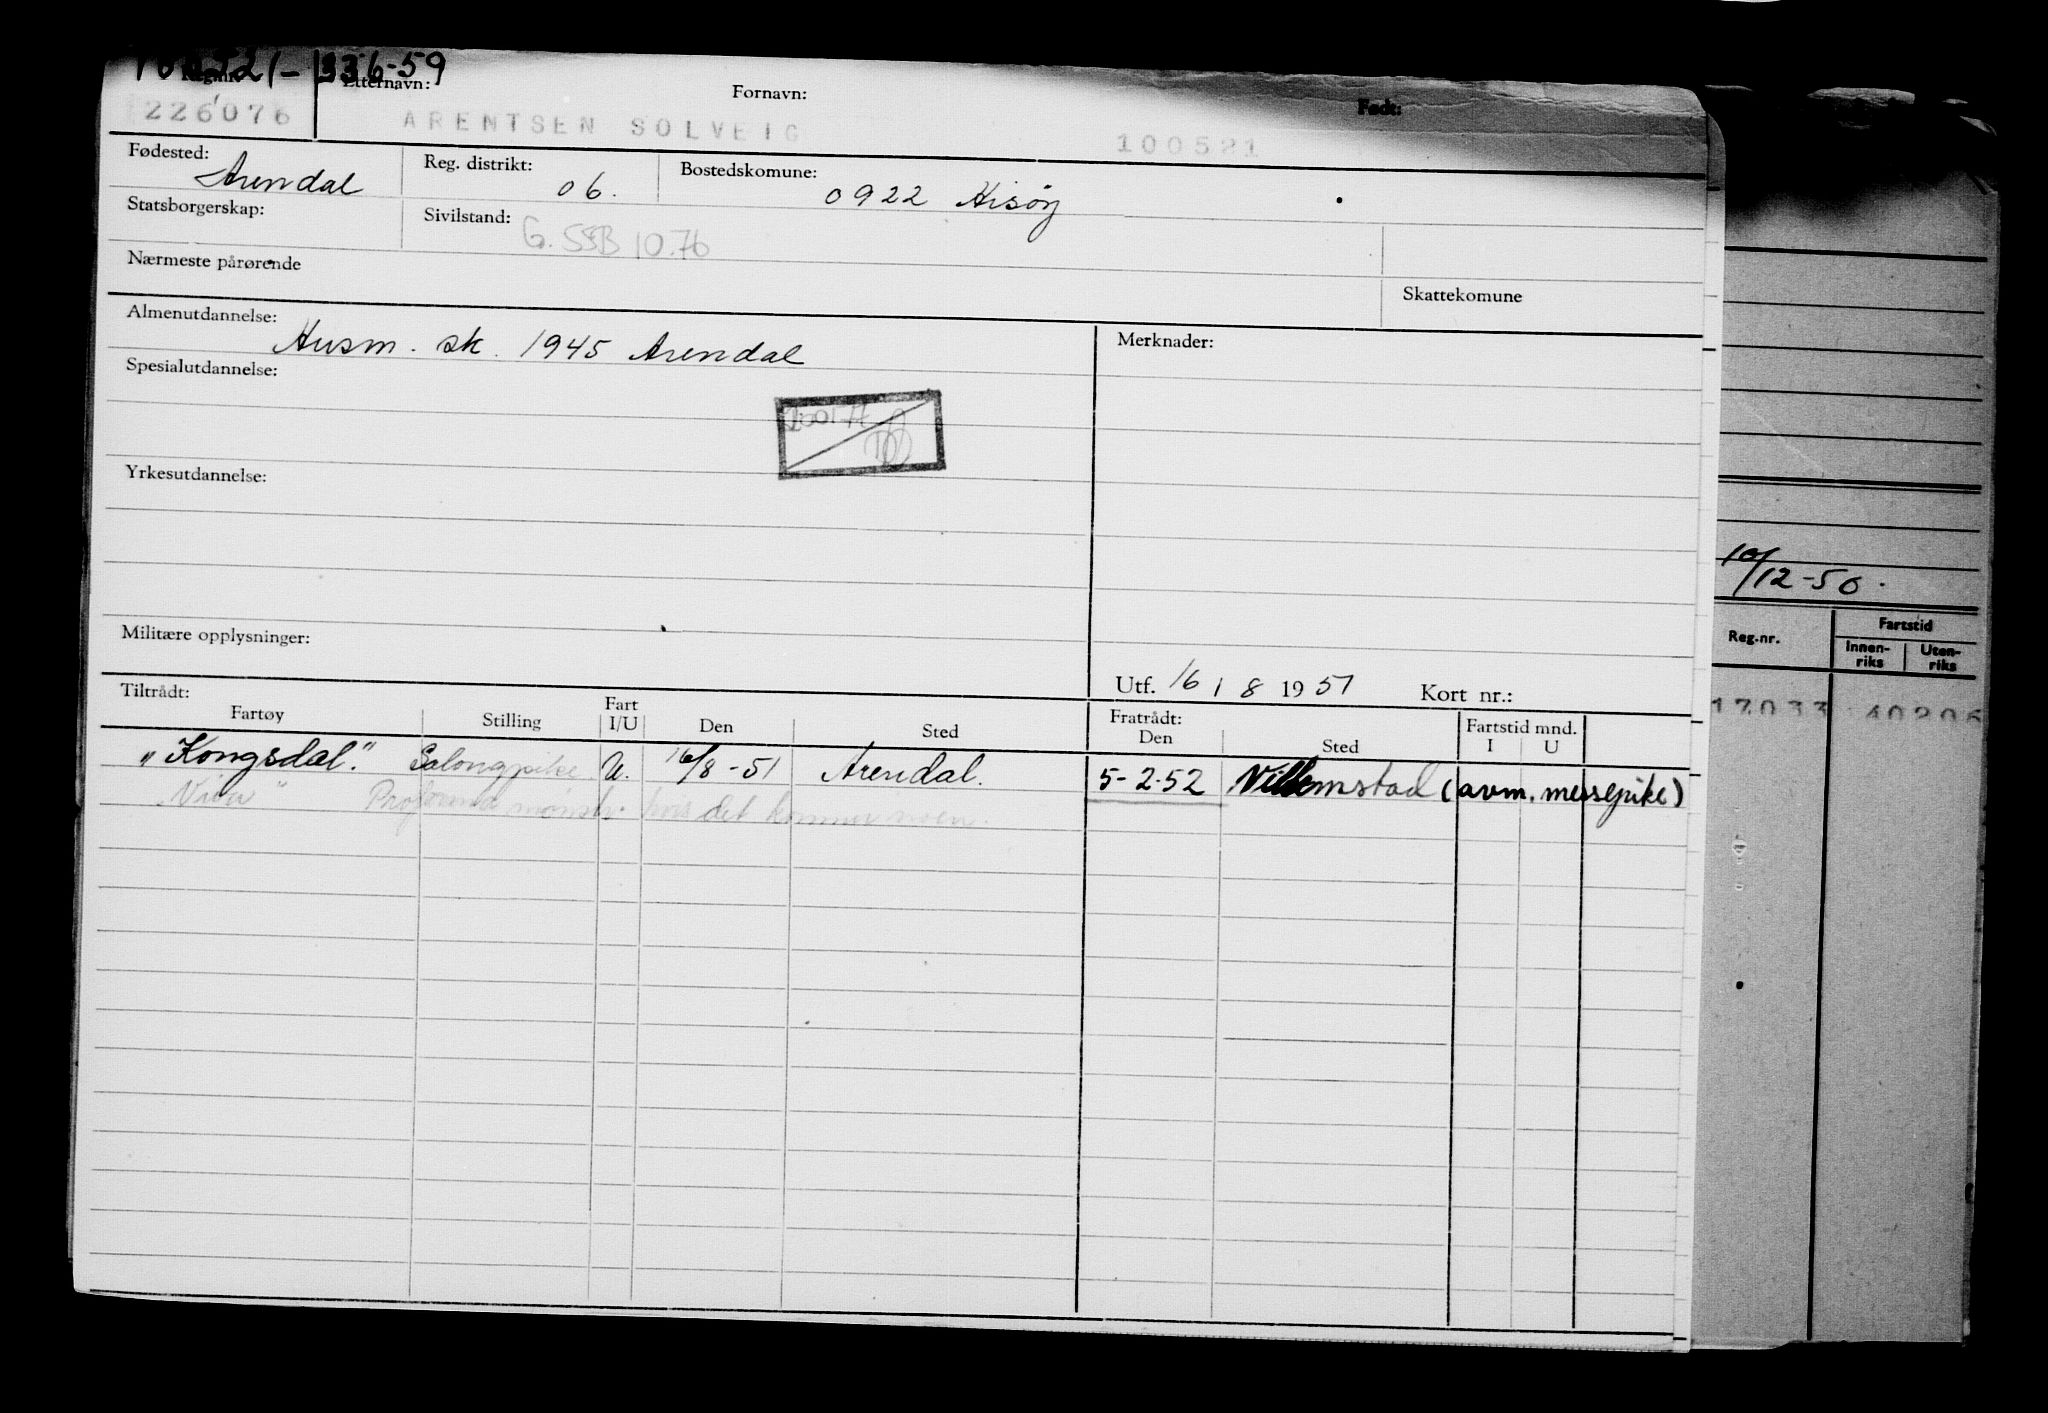 100521-33659
Reg.nr. Etternavn: Fornavn: Født:
226076 ARENTSEN SOLVEIG 100521
Fødested: Arendal Reg. distrikt: 06. Bostedskomune: 0922 Hisøy
Statsborgerskap: Sivilstand: G. SSB 10.76
Nærmeste pårørende Skattekomune
Almenutdannelse: Husm. sk. 1945 Arendal Merknader:
Spesialutdannelse:
Yrkesutdannelse:
Militære opplysninger:
Utf. 16 / 8 1951 Kort nr.:
Tiltrådt: Fratrådt: Fartstid mnd.
Fartøy Stilling Fart I/U Den Sted Den Sted I U
"Kongsdal". Salongpike U. 16/8-51 Arendal. 5-2-52 Villemstad (avm. messepike)
Proforma mønstr. hvis det kommer noen.
10/12-50.
Reg.nr. Fartstid
Innen-riks Uten-riks
17033 40206